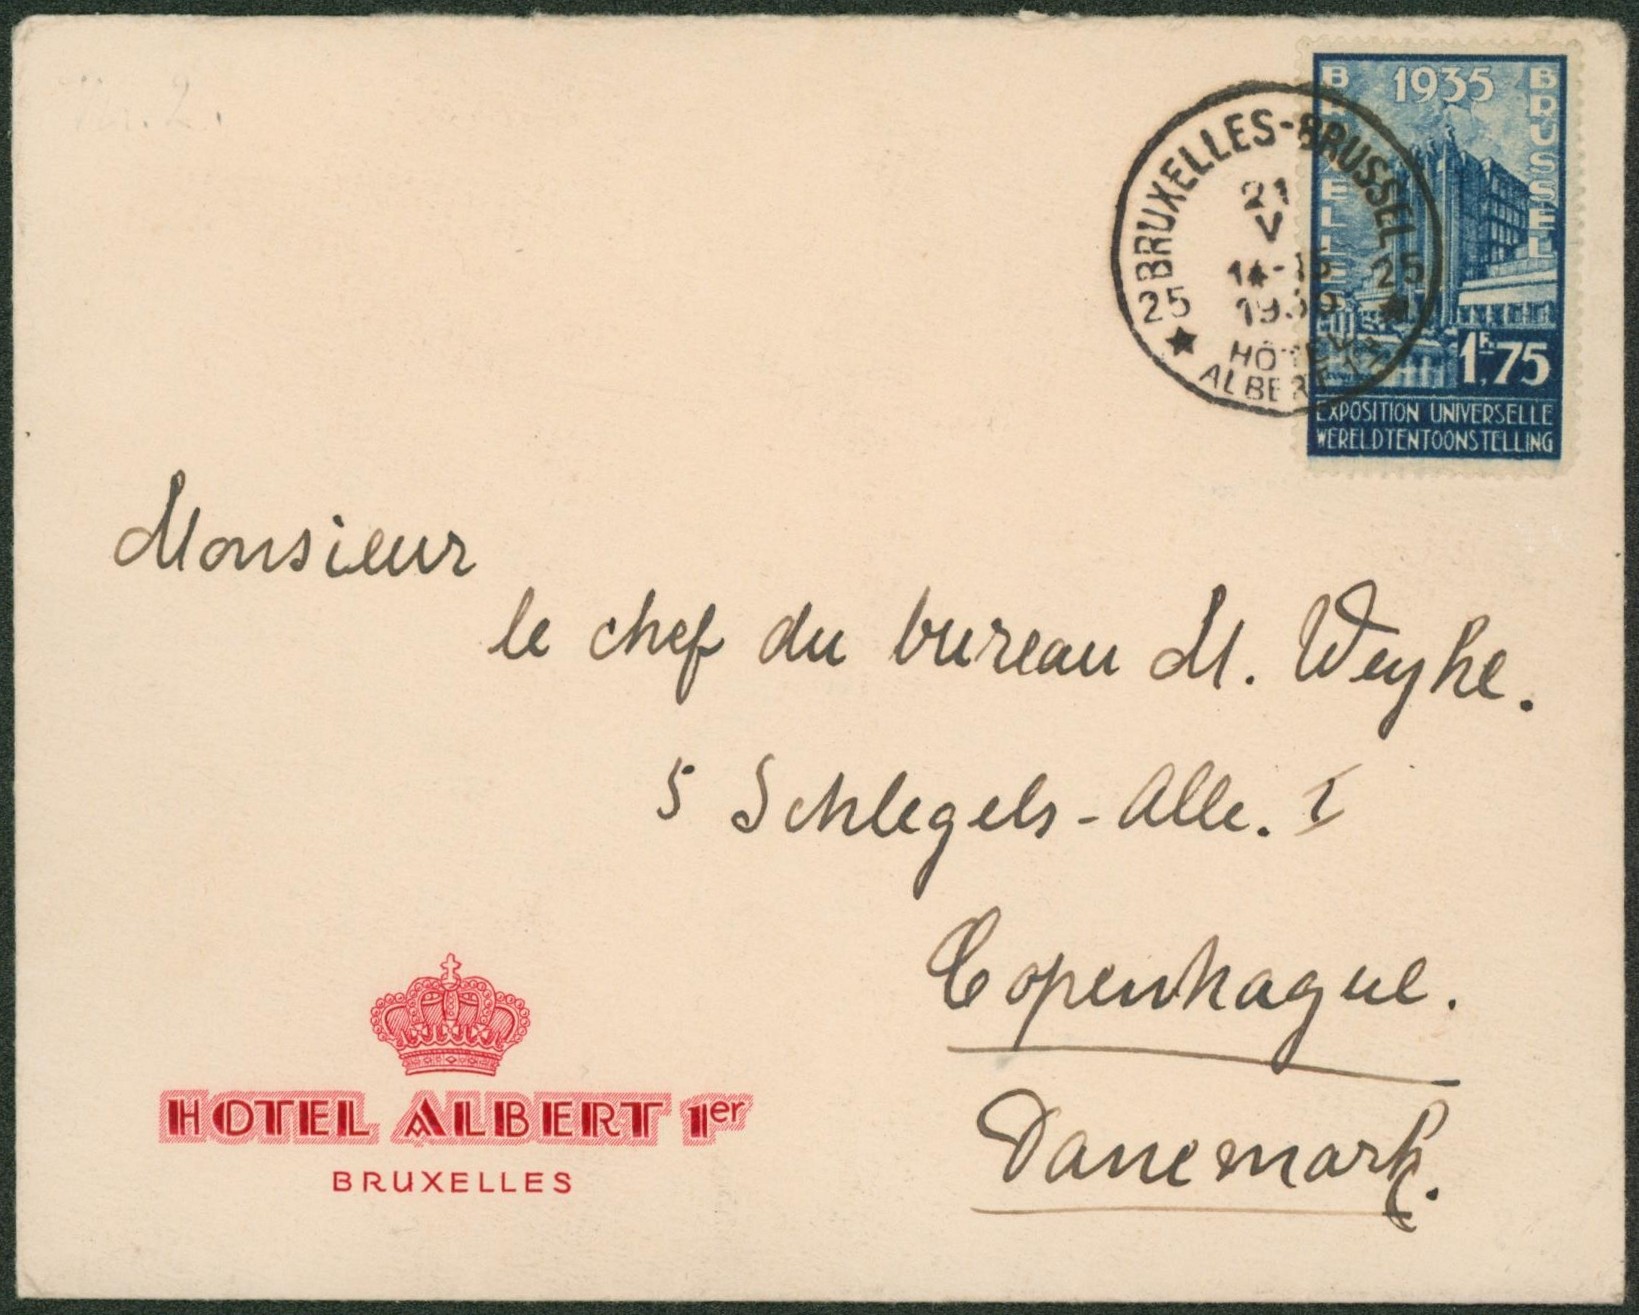 No. 2.
1935
BRUXELLES
BRUSSEL
1F.75
EXPOSITION UNIVERSELLE
WERELDTENTOONSTELLING
BRUXELLES-BRUSSEL
21
V
14-15
25 25
HÔTEL
ALBERT 1er
Monsieur
le chef du bureau M. Weyhe.
5 Schlegels-Alle. I
Copenhague.
Danemark.
HOTEL ALBERT 1er
BRUXELLES